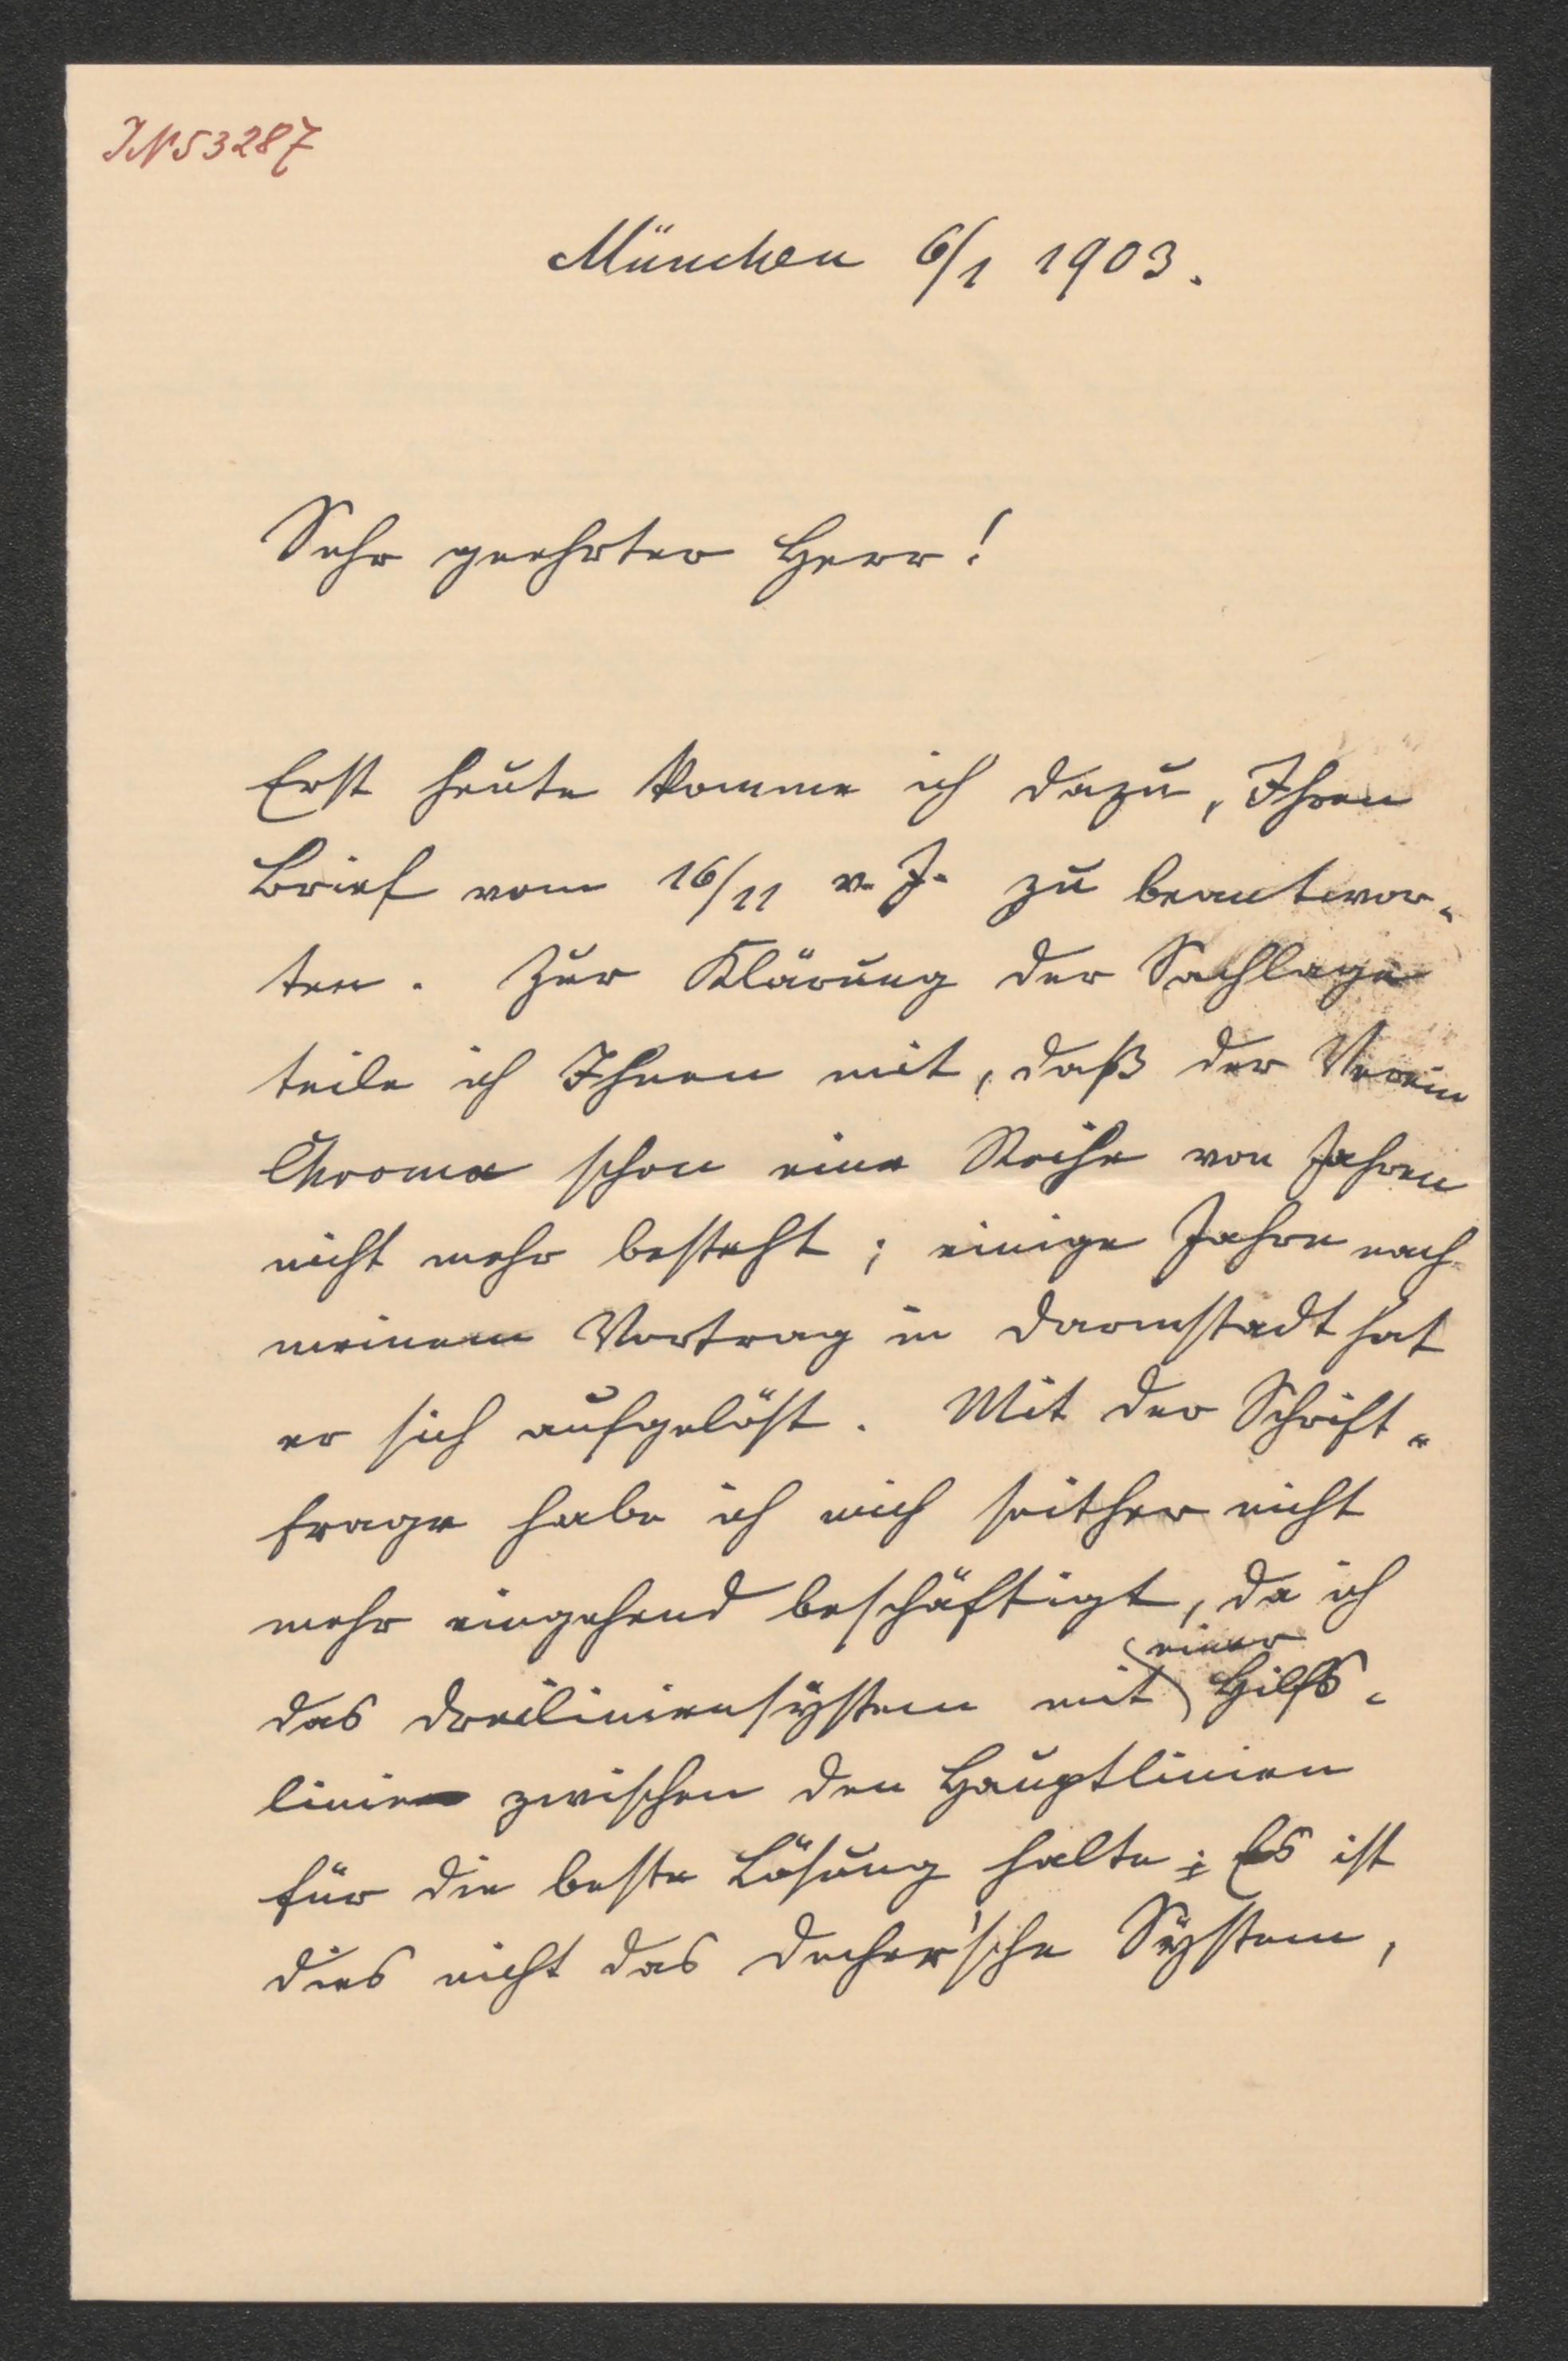 JN 53287
München 6/1 1903.
Sehr geehrter Herr!
Erst heute komme ich dazu, Ihren
Brief vom 16/11 v. J. zu beantwor-
ten. Zur Klärung der Sachlage
teile ich Ihnen mit, daß der Verein
Chroma schon eine Reihe von Jahren
nicht mehr besteht; einige Jahre nach
meinem Vortrag in Darmstadt hat
er sich aufgelöst. Mit der Schrift-
frage habe ich mich seither nicht
mehr eingehend beschäftigt, da ich
einer
das Dreiliniensystem mit Hilfs-
linie zwischen den Hauptlinien
für die beste Lösung halte; Es ist
dies nicht das Decher'sche System,